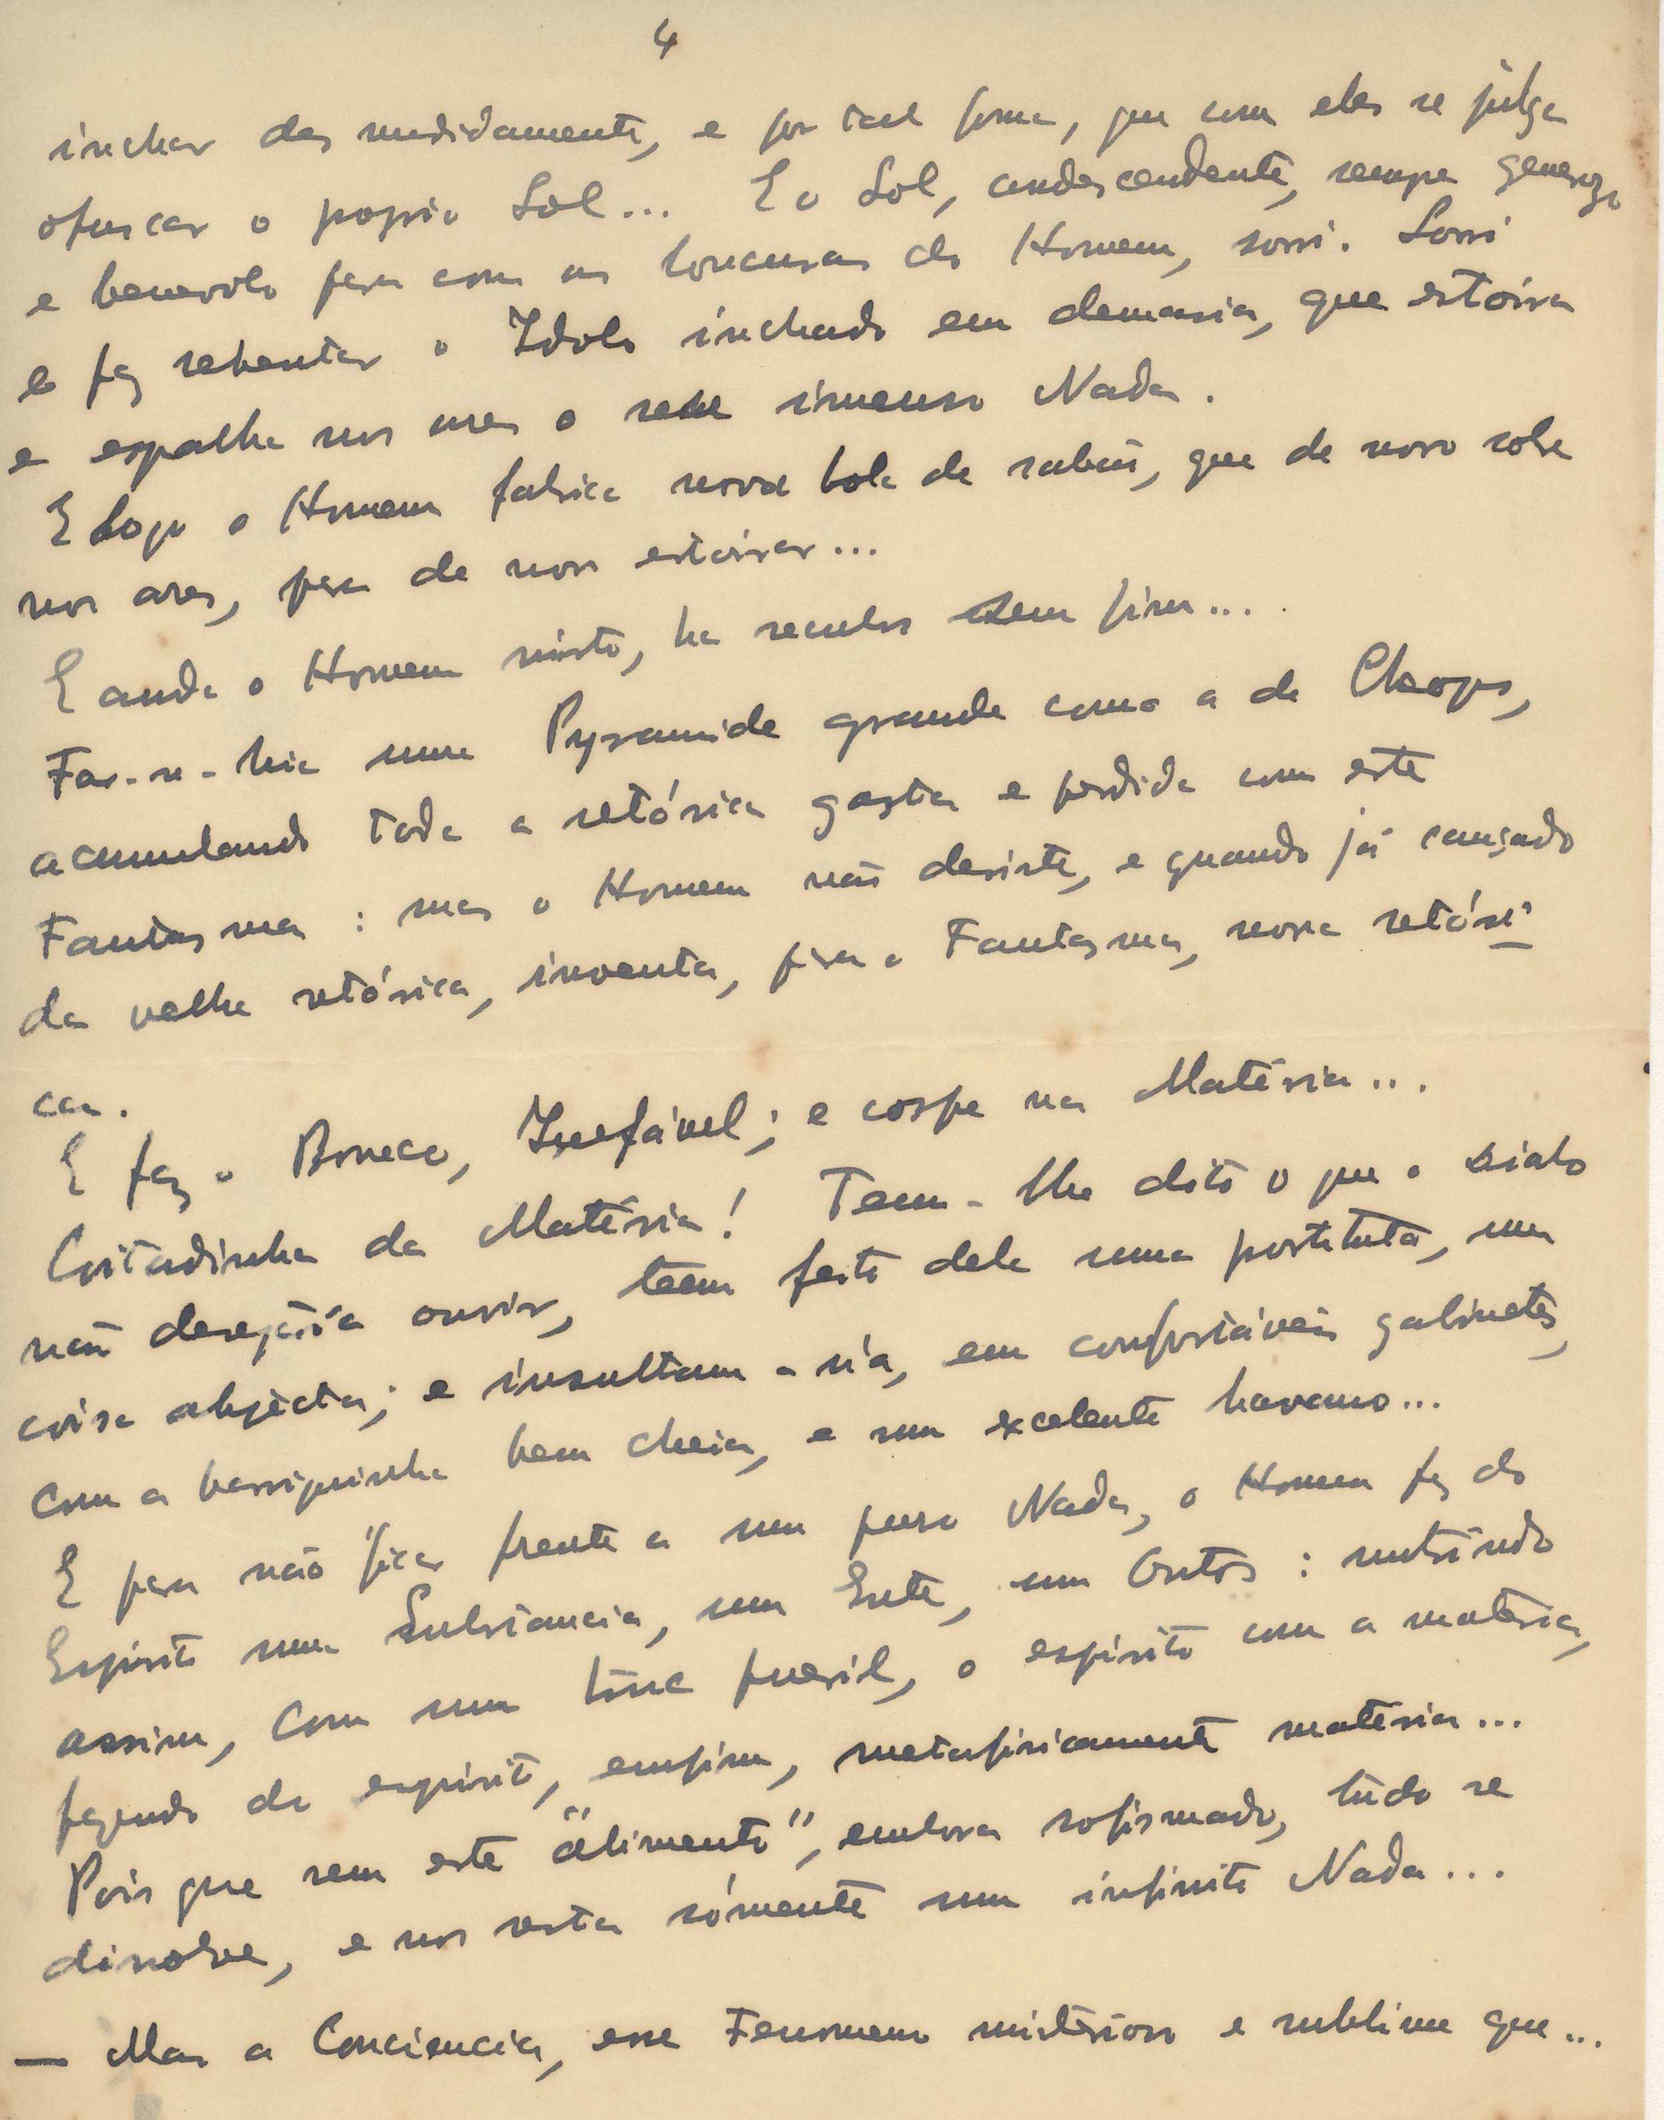 4
inchar desmedidamente, e por tal forma, que com eles se julga
ofuscar o proprio Sol... E o Sol, condescendente, sempre generozo
e benevolo para com as loucuras do Homem, sorri. Sorri
e faz rebentar o Idolo inchado em demasia, que estoira
e espalha nos ares o seu imenso Nada.
E logo o Homem fabrica nova bola de sabão, que de novo sobe
nos ares, para de novo estoirar...
E anda o Homem nisto, ha seculos sem fim...
Far-se-hia uma Pyramide grande como a de Cheops,
acumulando toda a retórica gasta e perdida com este
Fantasma: mas o Homem não desiste, e quando já cançado
da velha retórica, inventa, para o Fantasma, nova retóri
ca.
E faz o Boneco, Inefável; e cospe na Matéria...
Coitadinha da Matéria! Tem-lhe dito o que o Diabo
não desejaria ouvir, teem feito dela uma prostituta, uma
coisa abjecta; e insultam-na, em confortáveis gabinetes,
com a barriguinha bem cheia, e um excelente havano...
E para não ficar frente a um puro Nada, o Homem faz do
Espirito uma Substancia, um Ente, um Outro: nutrindo
assim, com um truc pueril, o espirito com a materia,
fazendo do espirito, emfim, metafisicamente materia...
Pois que sem este "alimento", embora sofismado, tudo se
dissolve, e nos resta sómente um infinito Nada...
— Mas a Conciencia, esse Fenomeno misterioso e sublime que...